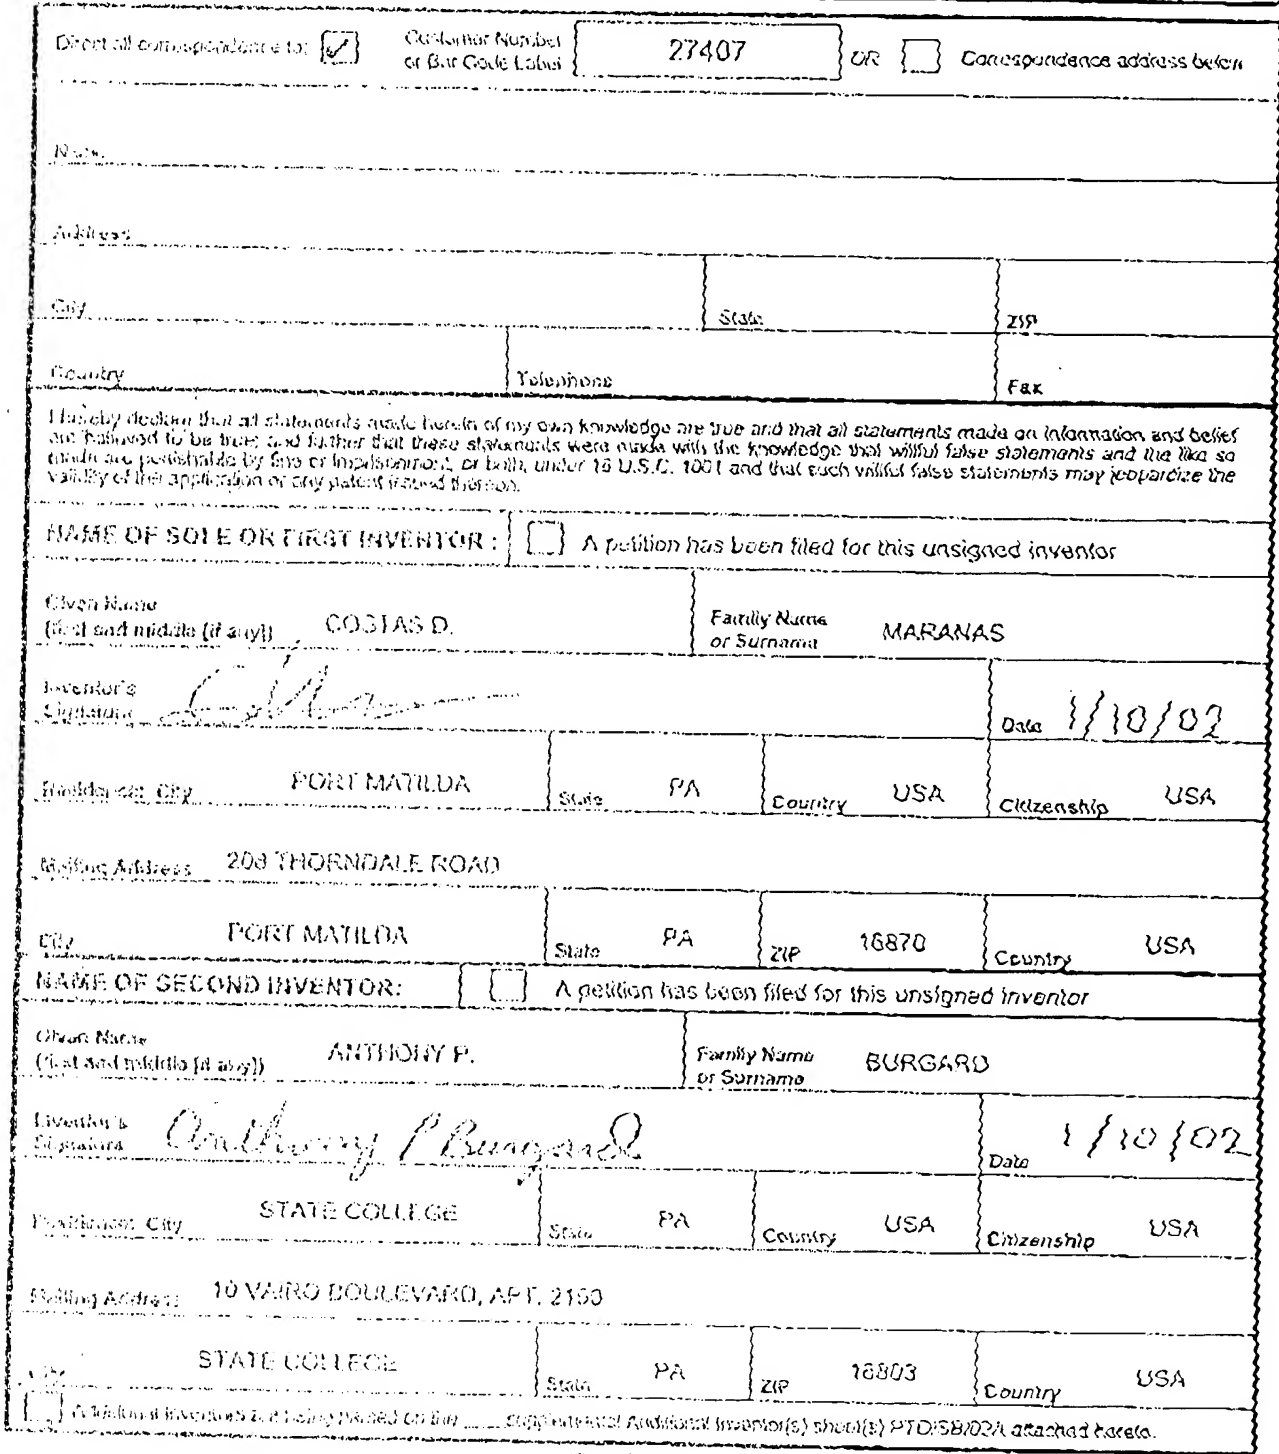 Direct all correspondence to: Customer Number or Bar Code Label 27407 OR Correspondence address below
Name
Address
City State ZIP
Country Telephone Fax
I hereby declare that all statements made herein of my own knowledge are true and that all statements made on information and belief
are believed to be true; and further that these statements were made with the knowledge that willful false statements and the like so
made are punishable by fine or imprisonment, or both, under 18 U.S.C. 1001 and that such willful false statements may jeopardize the
validity of the application or any patent issued thereon.
NAME OF SOLE OR FIRST INVENTOR : A petition has been filed for this unsigned inventor
Given Name
(first and middle [if any]) COSTAS D. Family Name or Surname MARANAS
Inventor's
Signature Date 1/10/02
Residence: City PORT MATILDA State PA Country USA Citizenship USA
Mailing Address 208 THORNDALE ROAD
City PORT MATILDA State PA ZIP 16870 Country USA
NAME OF SECOND INVENTOR: A petition has been filed for this unsigned inventor
Given Name
(first and middle [if any]) ANTHONY P. Family Name or Surname BURGARD
Inventor's
Signature Anthony P Burgard Date 1/10/02
Residence: City STATE COLLEGE State PA Country USA Citizenship USA
Mailing Address 10 VAIRO BOULEVARD, APT. 
City STATE COLLEGE State PA ZIP 16803 Country USA
Additional inventors are being named on the ____ supplemental Additional Inventor(s) sheet(s) PTO/SB/02A attached hereto.